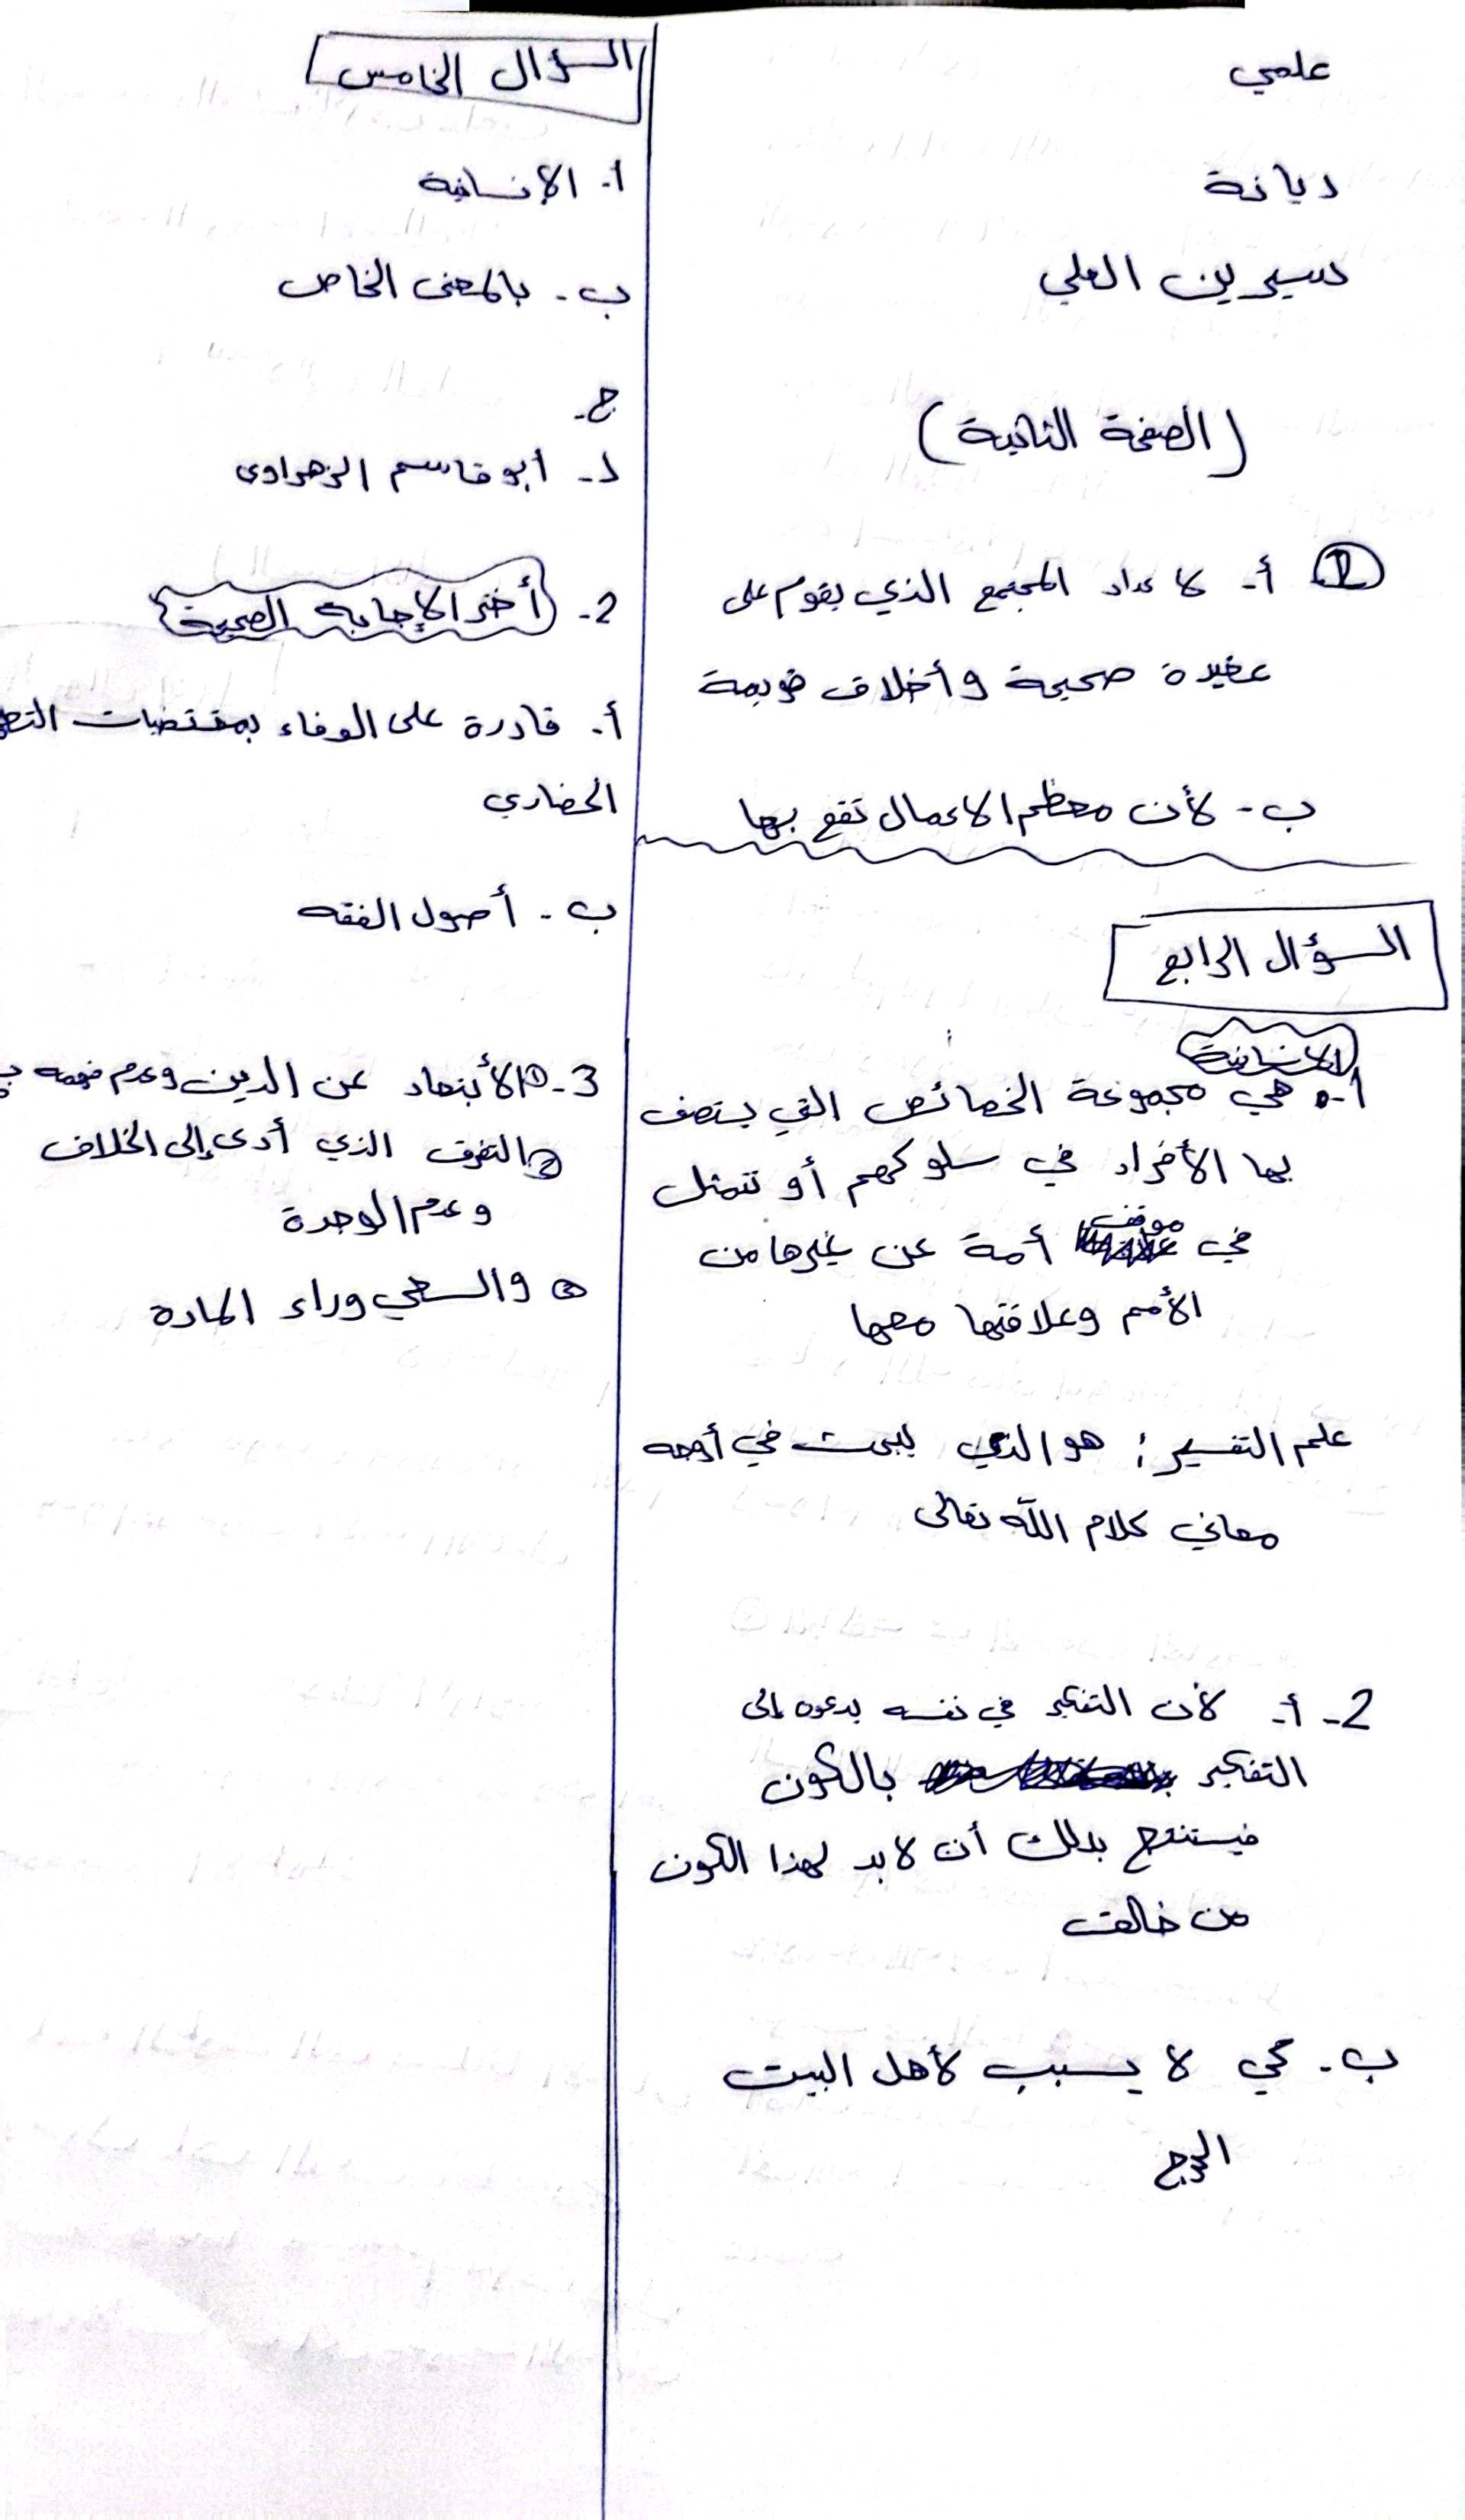 علمي
ديانة
سيرين العلي
(الصفحة الثانية)
1 أ- لاعداد المجتمع الذي يقوم على
عقيدة صحيحة وأخلاق قويمة
ب- لأن معظم الاعمال تقع بها
السؤال الرابع
الإنسانية
1- هي مجموعة الخصائص التي يتصف
بها الأفراد في سلوكهم أو تتمثل
في موقف أمة عن غيرها من
الأمم وعلاقتها معها
علم التفسير: هو الذي يبحث في أوجه
معاني كلام الله تعالى
2- أ- لأن التفكير في نفسه يدعوه إلى
التفكير بالكون
فيستنتج بذلك أن لابد لهذا الكون
من خالق
ب- كي لا يسبب لأهل البيت
الحرج
السؤال الخامس
أ- الإنسانية
ب- بالمعنى الخاص
ج-
د- أبو قاسم الزهراوي
2- أختر الإجابة الصحيحة
أ- قادرة على الوفاء بمقتضيات
الحضاري
ب- أصول الفقه
3- 1 الأبتعاد عن الدين وعدم فهمه
2 التفرق الذي أدى إلى الخلاف
وعدم الوحدة
3 والسعي وراء المادة